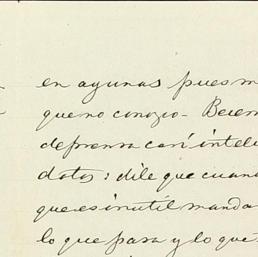 en ayunas pues m
que no conozco - Becem
de prensa casi intele
datos: dile que cuan
que es inutil manda
lo que pasa y lo que